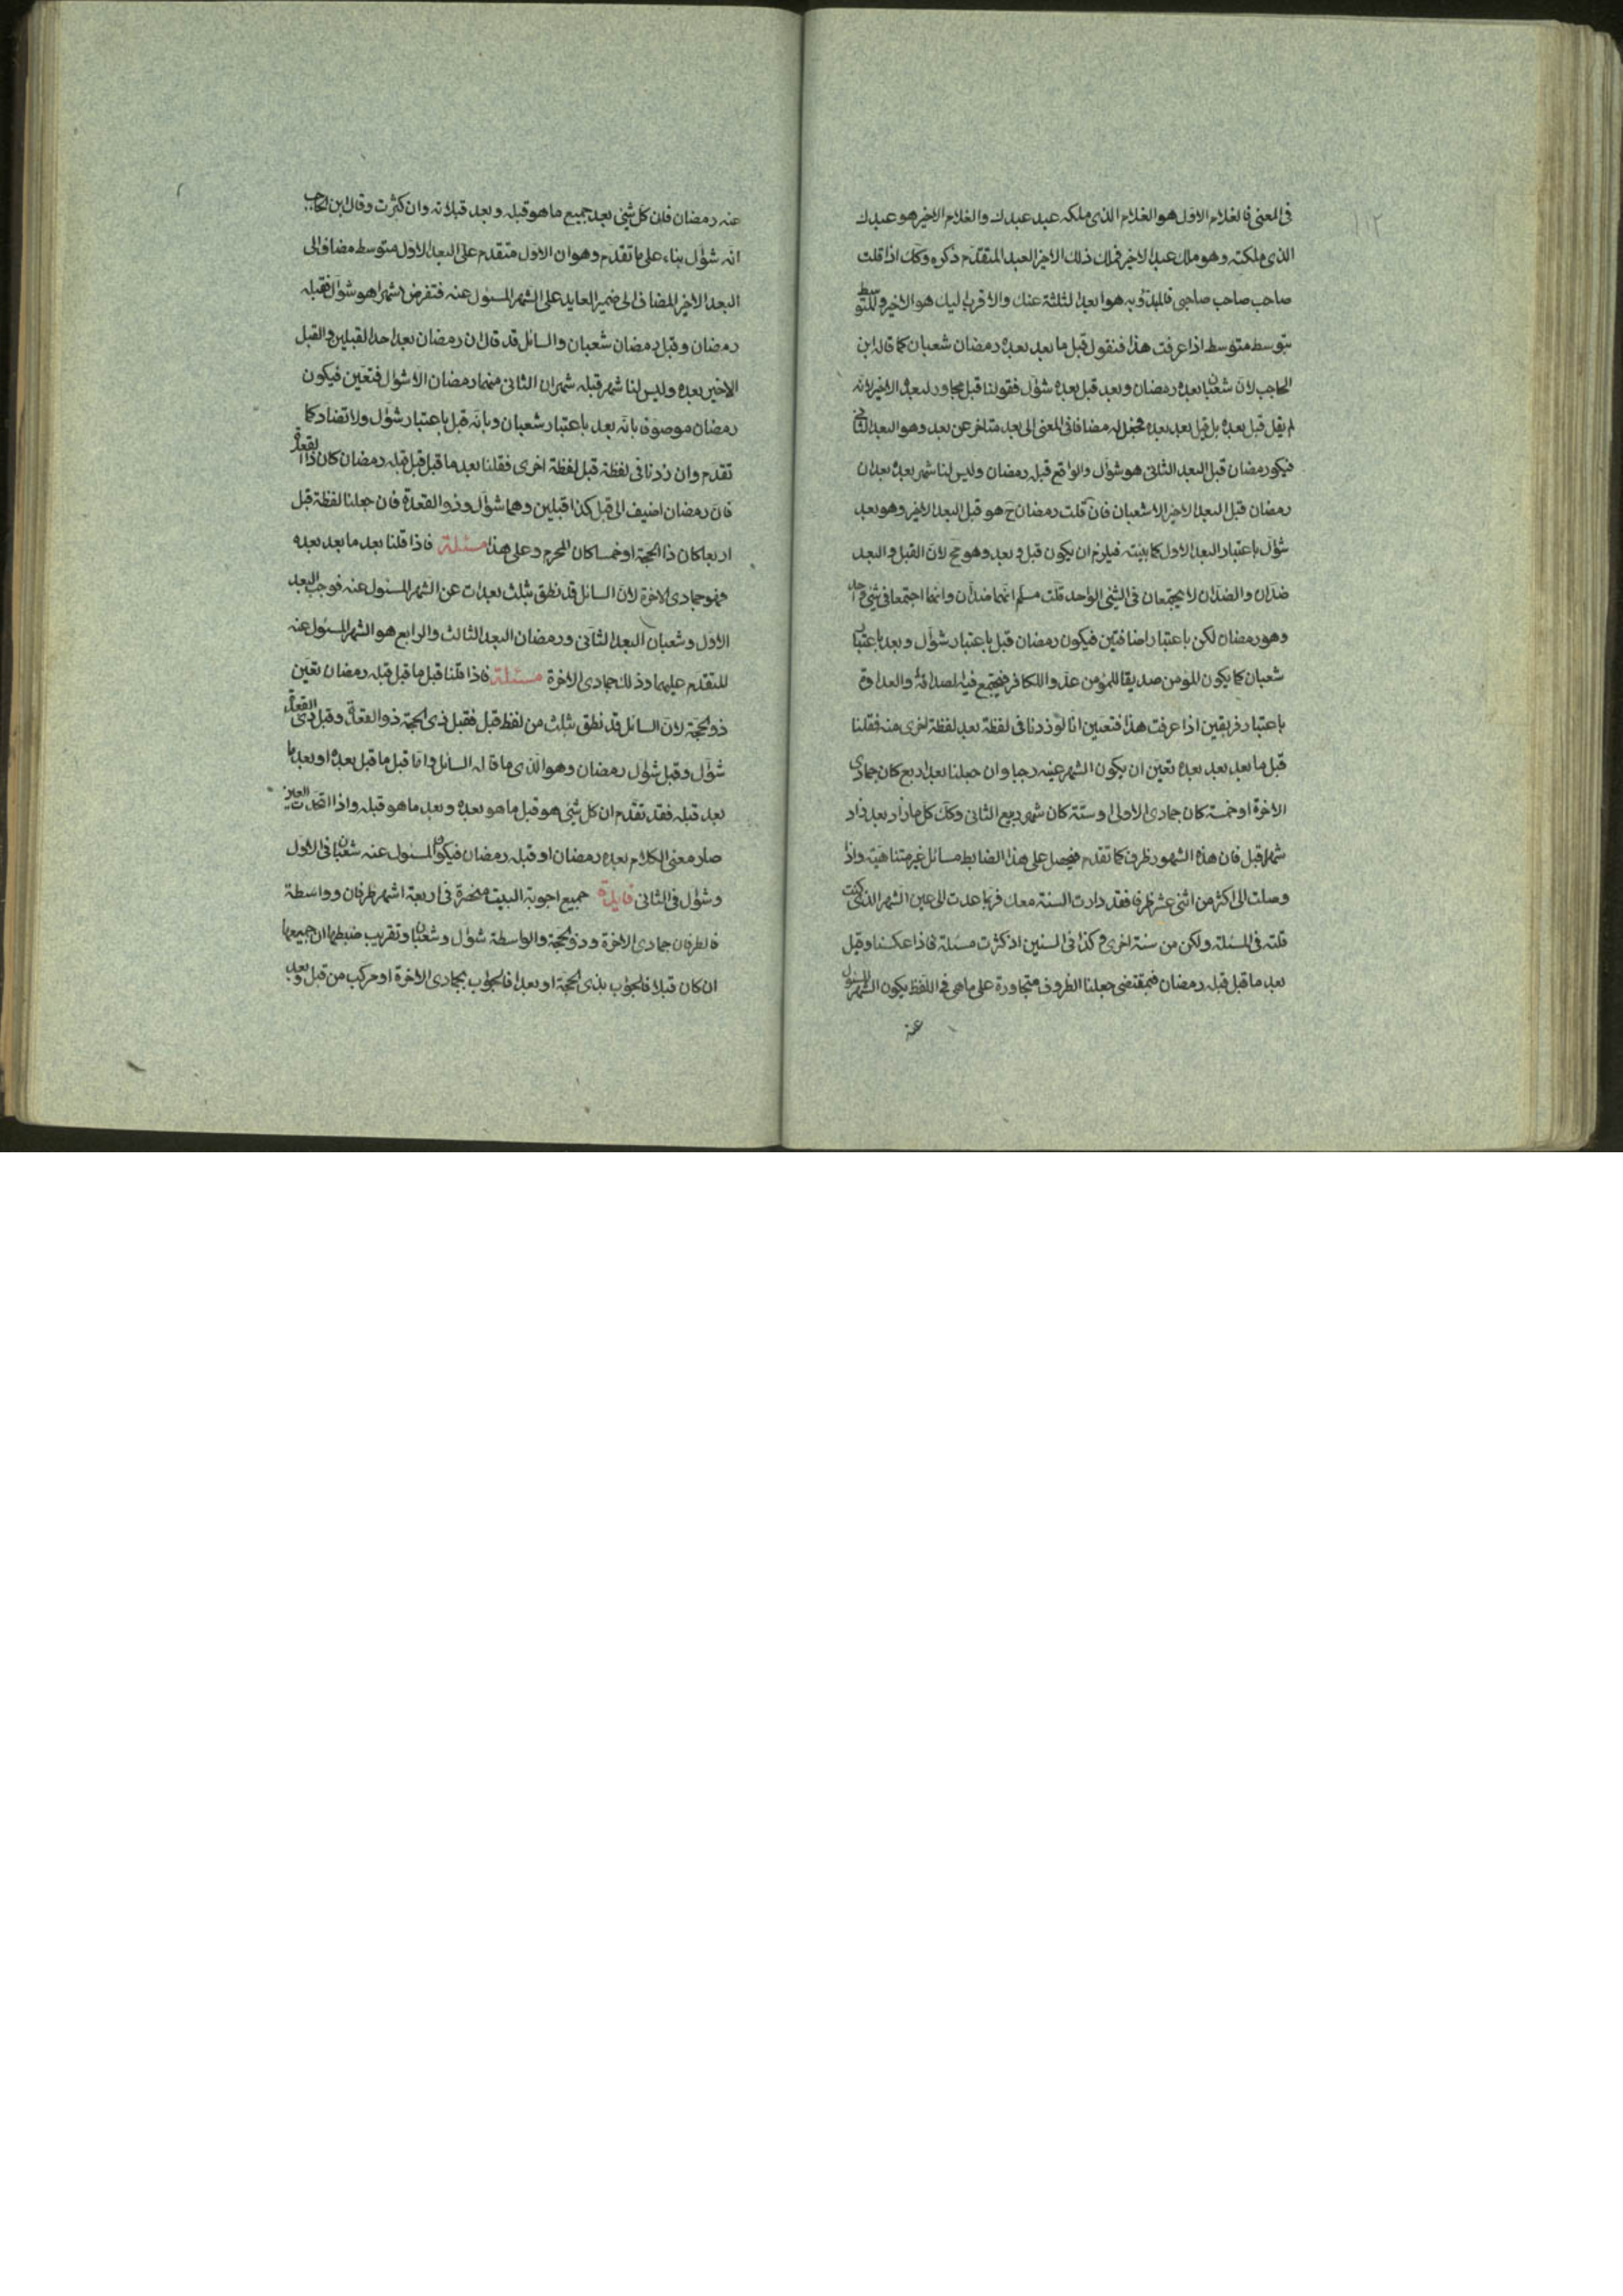 ١١٢
فى المعنى فالغلام الاول هو الغلام الذى ملكه عبد عبدك والغلام الاخير هو عبدك
الذى ملكته وهو ملك عبدا لاخير فملك ذلك الاخير العبد المتقدم ذكره وكك اذا قلت
صاحب صاحب صاحبى فالمبدؤ به هو ابعد الثلثة عنك والاقرب اليك هو الاخير والمتوسط
متوسط متوسط اذا عرفت هذا فنقول قبل ما بعد بعده رمضان شعبان كما قاله ابن
الحاجب لان شعبان بعده رمضان وبعد قبل بعده شوال فقولنا قبل مجاور لبعده الاخير لانه
لم يقل قبل بعده بل قبل بعد بعده فجعله مضافا فى المعنى الى بعد متاخر عن بعد وهو البعد الثانى
فيكو رمضان قبل البعد الثانى هو شوال والواقع قبله رمضان وليس لنا شهر بعده بعدان
رمضان قبل البعد الاخير الا شعبان فان قلت رمضان ح هو قبل البعد الاخير وهو بعد
شوال باعتبار البعد الاول كما بينته فيلزم ان يكون قبل وبعد وهو مح لان القبل والبعد
ضدان والضدان لا يجتمعان فى الشئ الواحد قلت مسلم انهما ضدان وانهما اجتمعا فى شئ واحد
وهو رمضان لكن باعتبار اضافتين فيكون رمضان قبل باعتبار شوال وبعد باعتبار
شعبان كما يكون المؤمن صديقا للمؤمن عدوا للكافر فيجتمع فيه الصداقة والعداوة
باعتبار فريقين اذا عرفت هذا فتعين انا لو زدنا فى لفظة بعد لفظة اخرى منه فقلنا
قبل ما بعد بعد بعده تعين ان يكون الشهر عينه رجبا وان جعلنا بعد اربع كان جمادى
الاخرة او خمسة كان جمادى الاولى او ستة كان شهر ربيع الثانى وكك كل ما زاد بعد زاد
شهر قبل فان هذه الشهور ظرف كما تقدم فيحصل على هذا الضابط مسائل غير متناهية واذا
وصلت الى اكثر من اثنى عشر ظرفا فقد دارت السنة معك فربما عدت الى عين الشهر الذى كنت
قلته فى المسئلة ولكن من سنة اخرى وكذا فى السنين اذ كثرت مسئلة فاذا عكسنا وقيل
بعد ما قبل قبله رمضان فبمقتضى جعلنا الظروف متجاورة على ما هى فى اللفظ يكون الشهر المسئول
عنه
عنه رمضان فان كل شئ بعد جميع ما هو قبله وبعد قبلاته وان كثرت وقال ابن الحاجب
انه شوال بناء على ما تقدم وهو ان الاول متقدم على البعد الاول متوسط مضاف الى
البعد الاخير المضاف الى ضمير العايد على الشهر المسئول عنه فتفرض شهرا هو شوال فقبله
رمضان وقبل رمضان شعبان والسائل قد قال ان رمضان بعد احد القبلين والقبل
الاخير بعده وليس لنا شهر قبله شهران الثانى منهما رمضان الا شوال فتعين فيكون
رمضان موصوفا بانه بعد باعتبار شعبان وبانه قبل باعتبار شوال ولا تضاد كما
تقدم وان زدنا فى لفظة قبل لفظة اخرى فقلنا بعد ما قبل قبل قبله رمضان كان ذا القعدة
فان رمضان اضيف الى قبل كذا قبلين وهما شوال وذو القعدة فان جعلنا لفظة قبل
اربعا كان ذا الحجة او خمسا كان المحرم وعلى هذا مسئلة فاذا قلنا بعد ما بعد بعده
فهو جمادى الاخرة لان السائل قد نطق بثلث بعدات عن الشهر المسئول عنه فرجب البعد
الاول وشعبان البعد الثانى ورمضان البعد الثالث والرابع هو الشهر المسئول عنه
المتقدم عليها وذلك جمادى الاخرة مسئلة فاذا قلنا قبل ما قبل قبله رمضان تعين
ذو الحجة لان السائل قد نطق بثلث من لفظ قبل فقبل ذى الحجة ذو القعدة وقبل ذى القعدة
شوال وقبل شوال رمضان وهو الذى ما قاله السائل واما قبل ما قبل بعده او بعد ما
بعد قبله فقد تقدم ان كل شئ هو قبل ما هو بعده وبعد ما هو قبله واذا اتحدت العين
صار معنى الكلام بعده رمضان او قبله رمضان فيكون المسئول عنه شعبان فى الاول
وشوال فى الثانى فايدة جميع اجوبة البيت منحصرة فى اربعة اشهر ظرفان وواسطة
فالطرفان جمادى الاخرة وذو الحجة والواسطة شوال وشعبان وتقريب ضبطها ان جميعها
ان كان قبلا فالجواب بذى الحجة او بعدا فالجواب بجمادى الاخرة او مركب من قبل وبعد